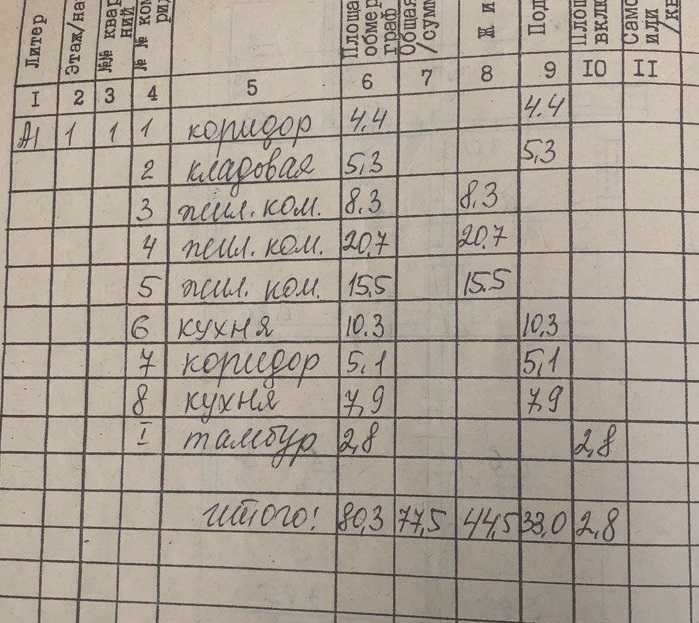 Литер
Этаж/на
№№ квар
ний
№ № ком
Площа
обмер
граф
Общая
/сумм
Жи
Под
Площ
вклю
Само
или
/кв
I 2 3 4 5 6 7 8 9 IO II
А1 1 1 1 коридор 4.4 4.4
2 кладовая 5,3 5,3
3 жил. ком. 8,3 8,3
4 жил. ком. 20,7 20.7
5 жил. ком. 15,5 15.5
6 кухня 10.3 10,3
7 коридор 5,1 5,1
8 кухня 7,9 7,9
I тамбур 2,8 2,8
итого: 80,3 77,5 44,5 33,0 2,8